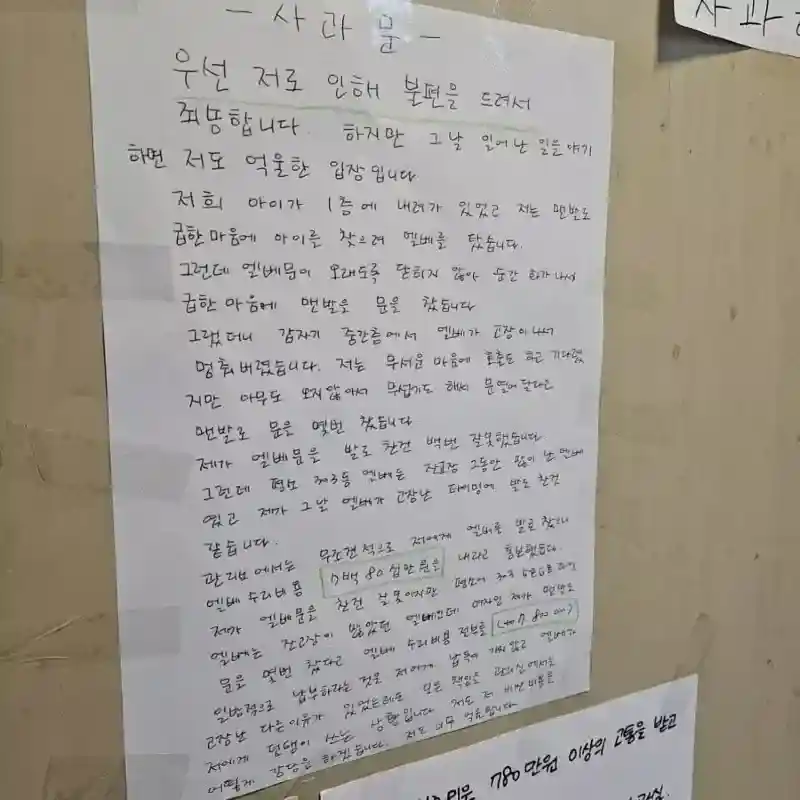 - 사 과 문 -
우선 저로 인해 불편을 드려서
죄송합니다. 하지만 그날 일어난 일을 얘기
하면 저도 억울한 입장입니다
저희 아이가 1층에 내려가 있었고 저는 맨발로
급한 마음에 아이를 찾으려 엘베를 탔습니다.
그런데 엘베문이 오래도록 닫히지 않아 순간 화가 나서
급한 마음에 맨발로 문을 찼습니다
그랬더니 갑자기 중간층에서 엘베가 고장이 나서
멈춰버렸습니다. 저는 무서운 마음에 호출도 하고 기다렸
지만 아무도 오지않아서 무섭기도 해서 문열어달라고
맨발로 문을 몇번 찼습니다
제가 엘베문을 발로 찬건 백번 잘못했습니다
그런데 평소 303동 엘베는 잔고장 그동안 많이 난 엘베
였고 제가 그날 엘베가 고장난 타이밍에 발로 찬것
같습니다.
관리소에서는 무조건적으로 저에게 엘베를 발로 찼으니
엘베 수리비용 7백 80십만원을 내라고 통보했습니다.
제가 엘베문을 찬건 잘못이지만 평소에 303
엘베는 잔고장이 많았던 엘베인데 여자인 제가 맨발로
문을 몇번 찼다고 엘베 수리비용 전부를
일방적으로 납부하라는 것은 저에게 납득이 가지 않고 엘베가
고장난 다른이유가 있었는데도 모든 책임을 관리실에서는
저에게 덤탱이 쓰는 상황입니다 저도 저 비싼 비용을
어떻게 감당을 하겠습니다. 저도 너무 억울합니다
사과
780만원 이상의 고통을 받고